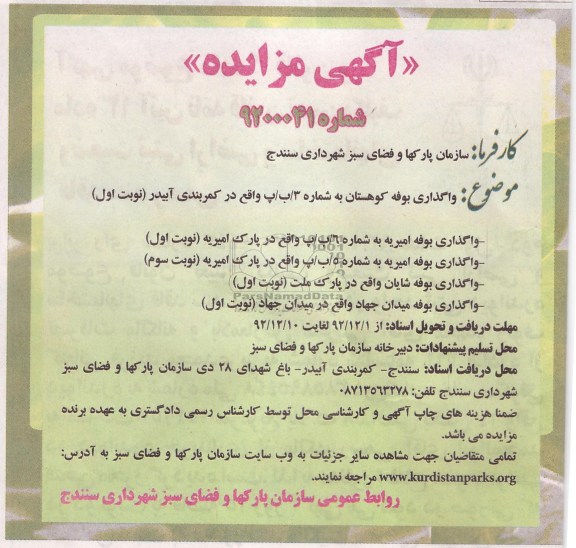 «آگهی مزایده»
شماره ۹۲۰۰۰۴۱
کارفرما: سازمان پارکها و فضای سبز شهرداری سنندج
موضوع: واگذاری بوفه کوهستان به شماره ۳/ب/پ واقع در کمربندی آبیدر (نوبت اول)
-واگذاری بوفه امیریه به شماره ۶/ب/پ واقع در پارک امیریه (نوبت اول)
-واگذاری بوفه امیریه به شماره ۵/ب/پ واقع در پارک امیریه (نوبت سوم)
-واگذاری بوفه شایان واقع در پارک ملت (نوبت اول)
-واگذاری بوفه میدان جهاد واقع در میدان جهاد (نوبت اول)
ParsNamadData
مهلت دریافت و تحویل اسناد: از ۹۲/۱۲/۱ لغایت ۹۲/۱۲/۱۰
محل تسلیم پیشنهادات: دبیرخانه سازمان پارکها و فضای سبز
محل دریافت اسناد: سنندج- کمربندی آبیدر- باغ شهدای ۲۸ دی سازمان پارکها و فضای سبز
شهرداری سنندج تلفن: ۰۸۷۱۳۵۶۳۲۷۸
ضمنا هزینه های چاپ آگهی و کارشناسی محل توسط کارشناس رسمی دادگستری به عهده برنده
مزایده می باشد.
تمامی متقاضیان جهت مشاهده سایر جزئیات به وب سایت سازمان پارکها و فضای سبز به آدرس:
www.kurdistanparks.org مراجعه نمایند.
روابط عمومی سازمان پارکها و فضای سبز شهرداری سنندج